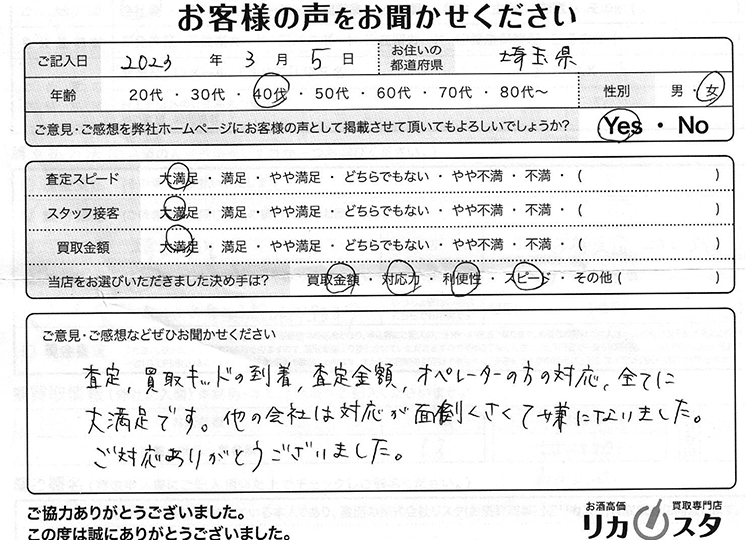 お客様の声をお聞かせください
ご記入日 2023 年 3 月 5 日 お住いの都道府県 埼玉県
年齢 20代・30代・40代・50代・60代・70代・80代〜 性別 男・女
ご意見・ご感想を弊社ホームページにお客様の声として掲載させて頂いてもよろしいでしょうか? Yes・No
査定スピード 大満足・満足・やや満足・どちらでもない・やや不満・不満・( )
スタッフ接客 大満足・満足・やや満足・どちらでもない・やや不満・不満・( )
買取金額 大満足・満足・やや満足・どちらでもない・やや不満・不満・( )
当店をお選びいただきました決め手は? 買取金額・対応力・利便性・スピード・その他( )
ご意見・ご感想などぜひお聞かせください
査定,買取キッドの到着,査定金額,オペレーターの方の対応,全てに
大満足です。他の会社は対応が面倒くさくて嫌になりました。
ご対応ありがとうございました。
ご協力ありがとうございました。
この度は誠にありがとうございました。
お酒高価 買取専門店
リカスタ